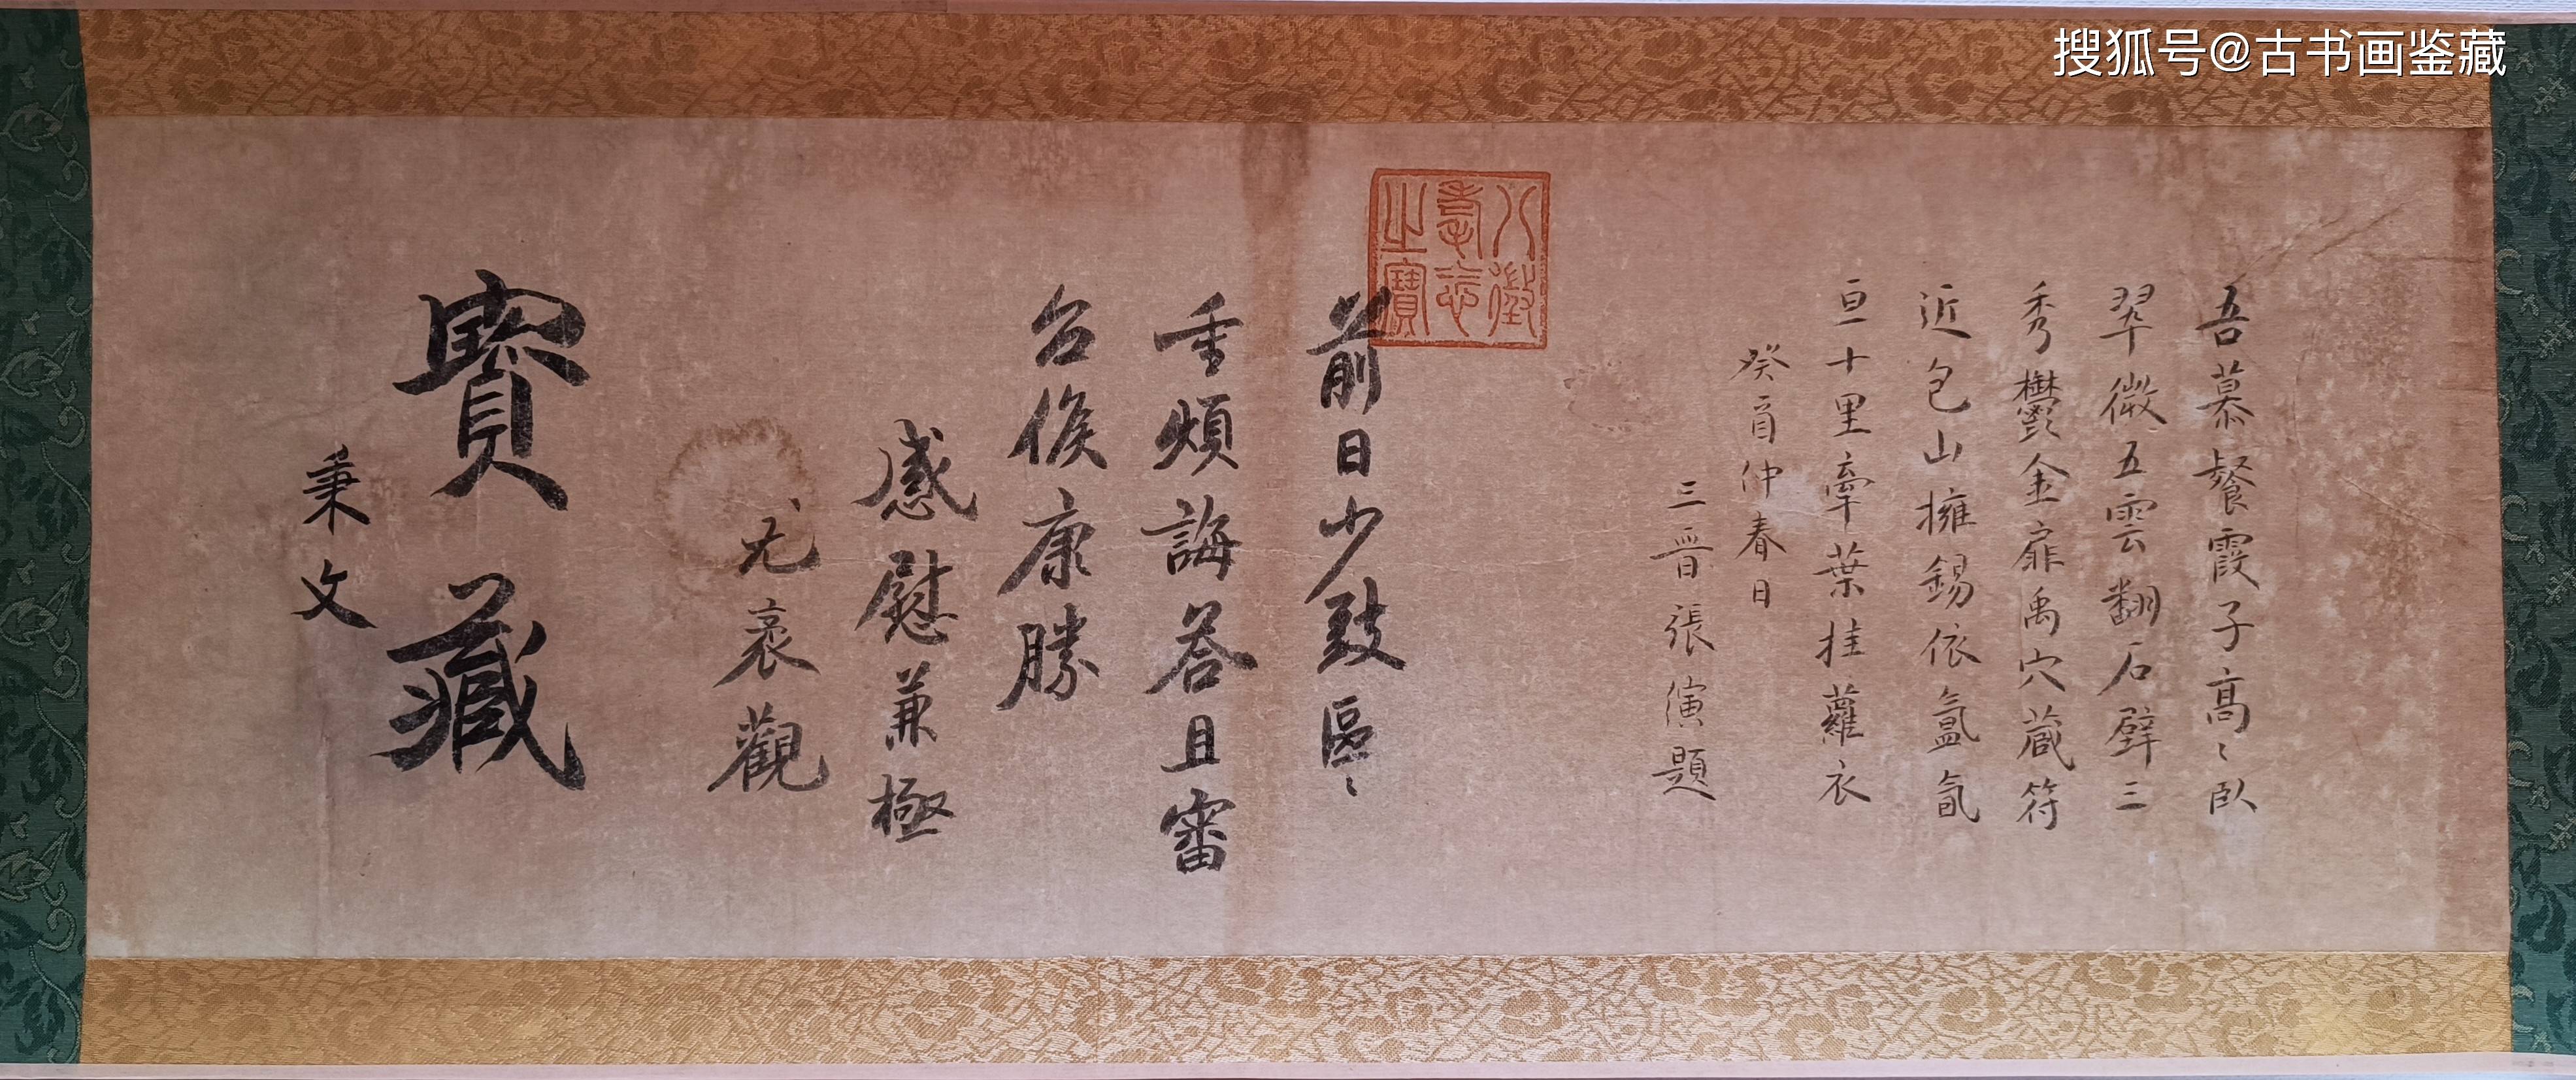 搜狐号@古书画鉴藏
吾慕餐霞子高〻臥
翠微五雲翻石壁三
秀鬱金扉禹穴藏符
近包山擁錫依氤氳
亘十里牽葉挂蘿衣
癸酉仲春日
三晋張演題
八徵耄念之寶
前日少致區〻
重煩誨答且審
台候康勝
感慰兼極
尤袤觀
寶藏
秉文